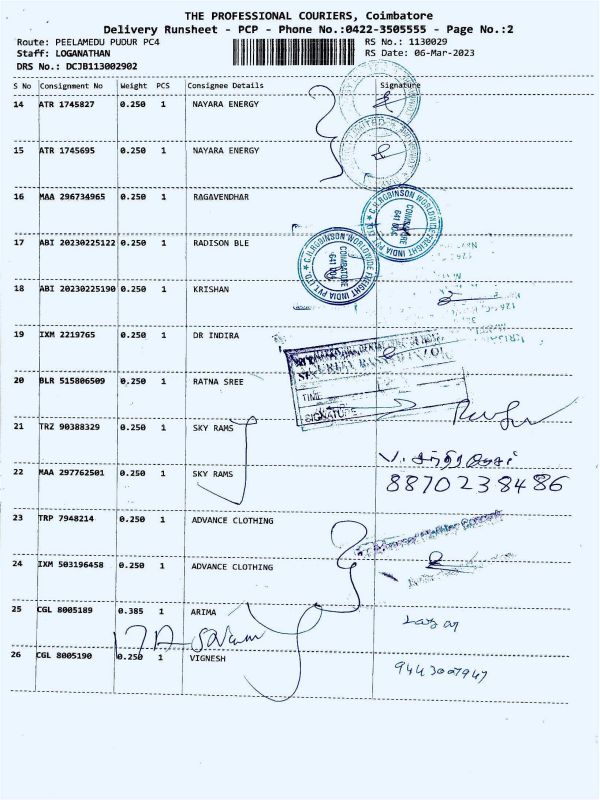 THE PROFESSIONAL COURIERS, Coimbatore
Delivery Runsheet - PCP - Phone No.:0422-3505555 - Page No.:2
Route: PEELAMEDU PUDUR PC4 RS No.: 1130029
Staff: LOGANATHAN RS Date: 06-Mar-2023
DRS No.: DCJB113002902
S No Consignment No Weight PCS Consignee Details Signature
14 ATR 1745827 0.250 1 NAYARA ENERGY
15 ATR 1745695 0.250 1 NAYARA ENERGY
16 MAA 296734965 0.250 1 RAGAVENDHAR
C.H.ROBINSON WORLDWIDE FREIGHT INDIA PVT. LTD. COIMBATORE
17 ABI 20230225122 0.250 1 RADISON BLE
C.H.ROBINSON WORLDWIDE FREIGHT INDIA PVT. LTD. COIMBATORE
18 ABI 20230225190 0.250 1 KRISHAN
19 IXM 2219765 0.250 1 DR INDIRA
20 BLR 515806509 0.250 1 RATNA SREE
TIME
SIGNATURE
21 TRZ 90388329 0.250 1 SKY RAMS
22 MAA 297762501 0.250 1 SKY RAMS
8870238486
23 TRP 7948214 0.250 1 ADVANCE CLOTHING
24 IXM 503196458 0.250 1 ADVANCE CLOTHING
25 CGL 8005189 0.385 1 ARIMA
26 CGL 8005190 0.250 1 VIGNESH
9443007947